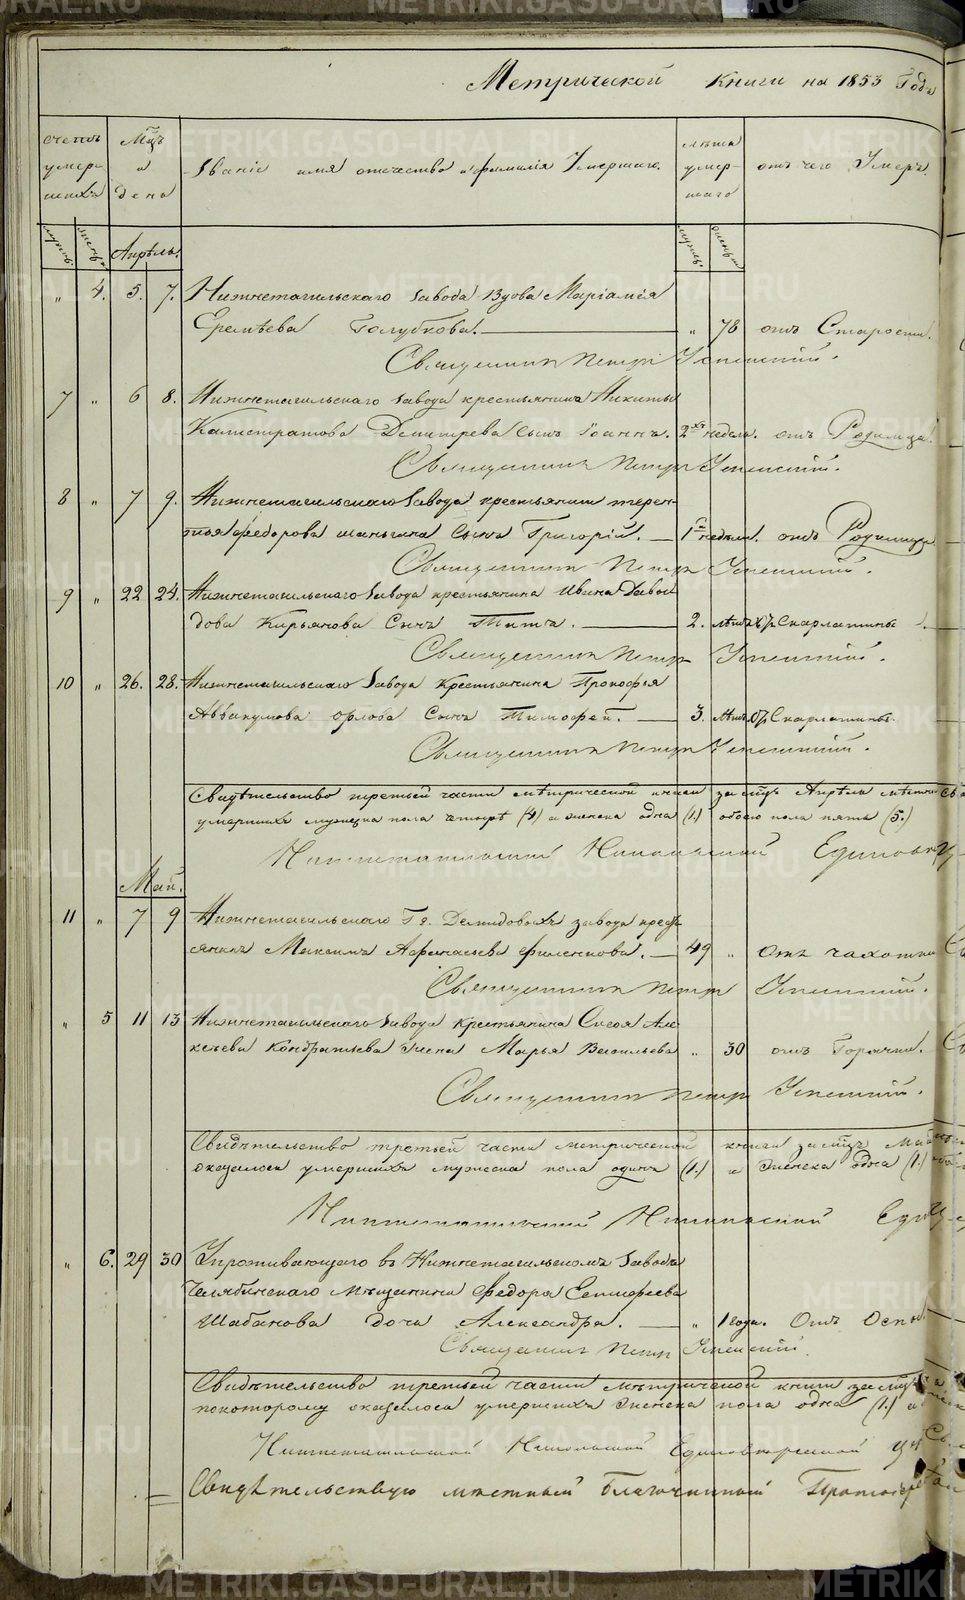 Метрической Книги на 1853 Годъ
счетъ умершихъ
Мцъ и день
Званіе имя отечество и фамилія Умершаго.
лѣта умершаго
отъ чего Умеръ.
мужс. женс.
Апрѣль.
мужс. женск
" 4. 5. 7. Нижнетагильскаго завода Вдова Маріамія
Еремѣева Голубкова. " 78 отъ Старости.
Священникъ Петръ Успенскій.
7 " 6 8. Нижнетагильскаго завода крестьянина Никиты
Калистратова Дмитрева сынъ Іоаннъ. 2хъ недель. отъ Родимца.
Священникъ Петръ Успенскій.
8 " 7 9. Нижнетагильскаго Завода крестьянина терен-
тья Федорова шаньгина Сынъ Григорій. 1й недели. отъ Родимца
Священникъ Петръ Успенскій.
9 " 22 24. Нижнетагильскаго Завода крестьянина Ивана Давы
дова Кирьянова Сынъ Титъ. 2. лѣтъ Скарлатины
Священникъ Петръ Успенскій.
10 " 26. 28. Нижнетагильскаго Завода Крестьянина Прокофья
Аввакумова орлова Сынъ Тимофей. 3. лѣтъ Скарлатины.
Священникъ Петръ Успенскій.
Свидѣтельство третьей части мѣтрической книги за мцъ Апрѣль
умершихъ мужеска пола четыре (4) и женска одна (1.) обоего пола пять (5.)
Нижнетагильской Николаевской Единовѣ
Май.
11 " 7 9 Нижнетагильскаго Гг. Демидовыхъ завода крест
янинъ Максимъ Афанасьевъ Филенкова. 49 " Отъ чахотки
Священникъ Петръ Успенскій.
" 5 11 13 Нижнетагильскаго Завода Крестьянина Сысоя Але
ксѣева Кондратьева жена Марья Васильева " 30 отъ Горячки.
Священникъ Петръ Успенскій.
Свидѣтельство третьей части метрической книги за мцъ Май
оказалось умершихъ мужеска пола одинъ (1.) и Женска одна (1.)
Нижнетагильской Николаевской Един
" 6. 29 30 Упроживающаго въ Нижнетагильскомъ Заводѣ
Челябинскаго мѣщанина Федора Ептифеева
Шабанова дочь Александра. " 1 года. Отъ Оспы.
Священникъ Петръ Успенскій.
Свидѣтельство третьей части мѣтрической книги за мцъ
покоторому оказалось умершихъ женска пола одна (1.)
Нижнетагильской Никольской Единоверческой
Свидѣтельствую мѣстный Благочинный Протоіерей
METRIKI.GASO-URAL.RU